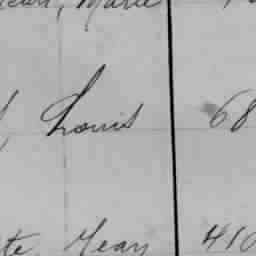 Marie
Louis 68
te, Jean 410